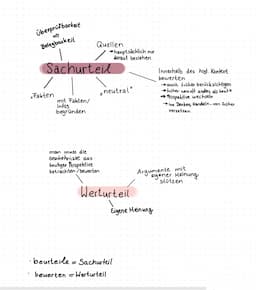 Überprüfbarkeit
und
Belegbarkeit
Quellen
→ hauptsächlich nur
darauf beziehen
Sachurteil
Innerhalb des hist. Kontext
bewerten
→ auch Sicht berücksichtigen
→ früher war alles anders als heute
→ Perspektive wechseln
→ ins Denken, Handeln von früher
versetzen
"neutral"
Fakten
mit Fakten/
Infos
begründen
man muss die
aus
heutiger Perspektive
betrachten/bewerten
Argumente mit
eigener Meinung
stützen
Werturteil
Eigene Meinung
· beurteile = Sachurteil
· bewerten = Werturteil